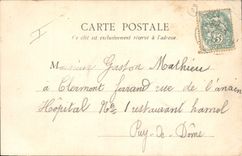 CARTE POSTALE
Ce côté est exclusivement réservé à l'adresse
I
Monsieur Gaston Mathieu
à Clermont ferand rue de l'anain
Hôpital No 1 restaurant hamol
Puy-de-Dôme
5